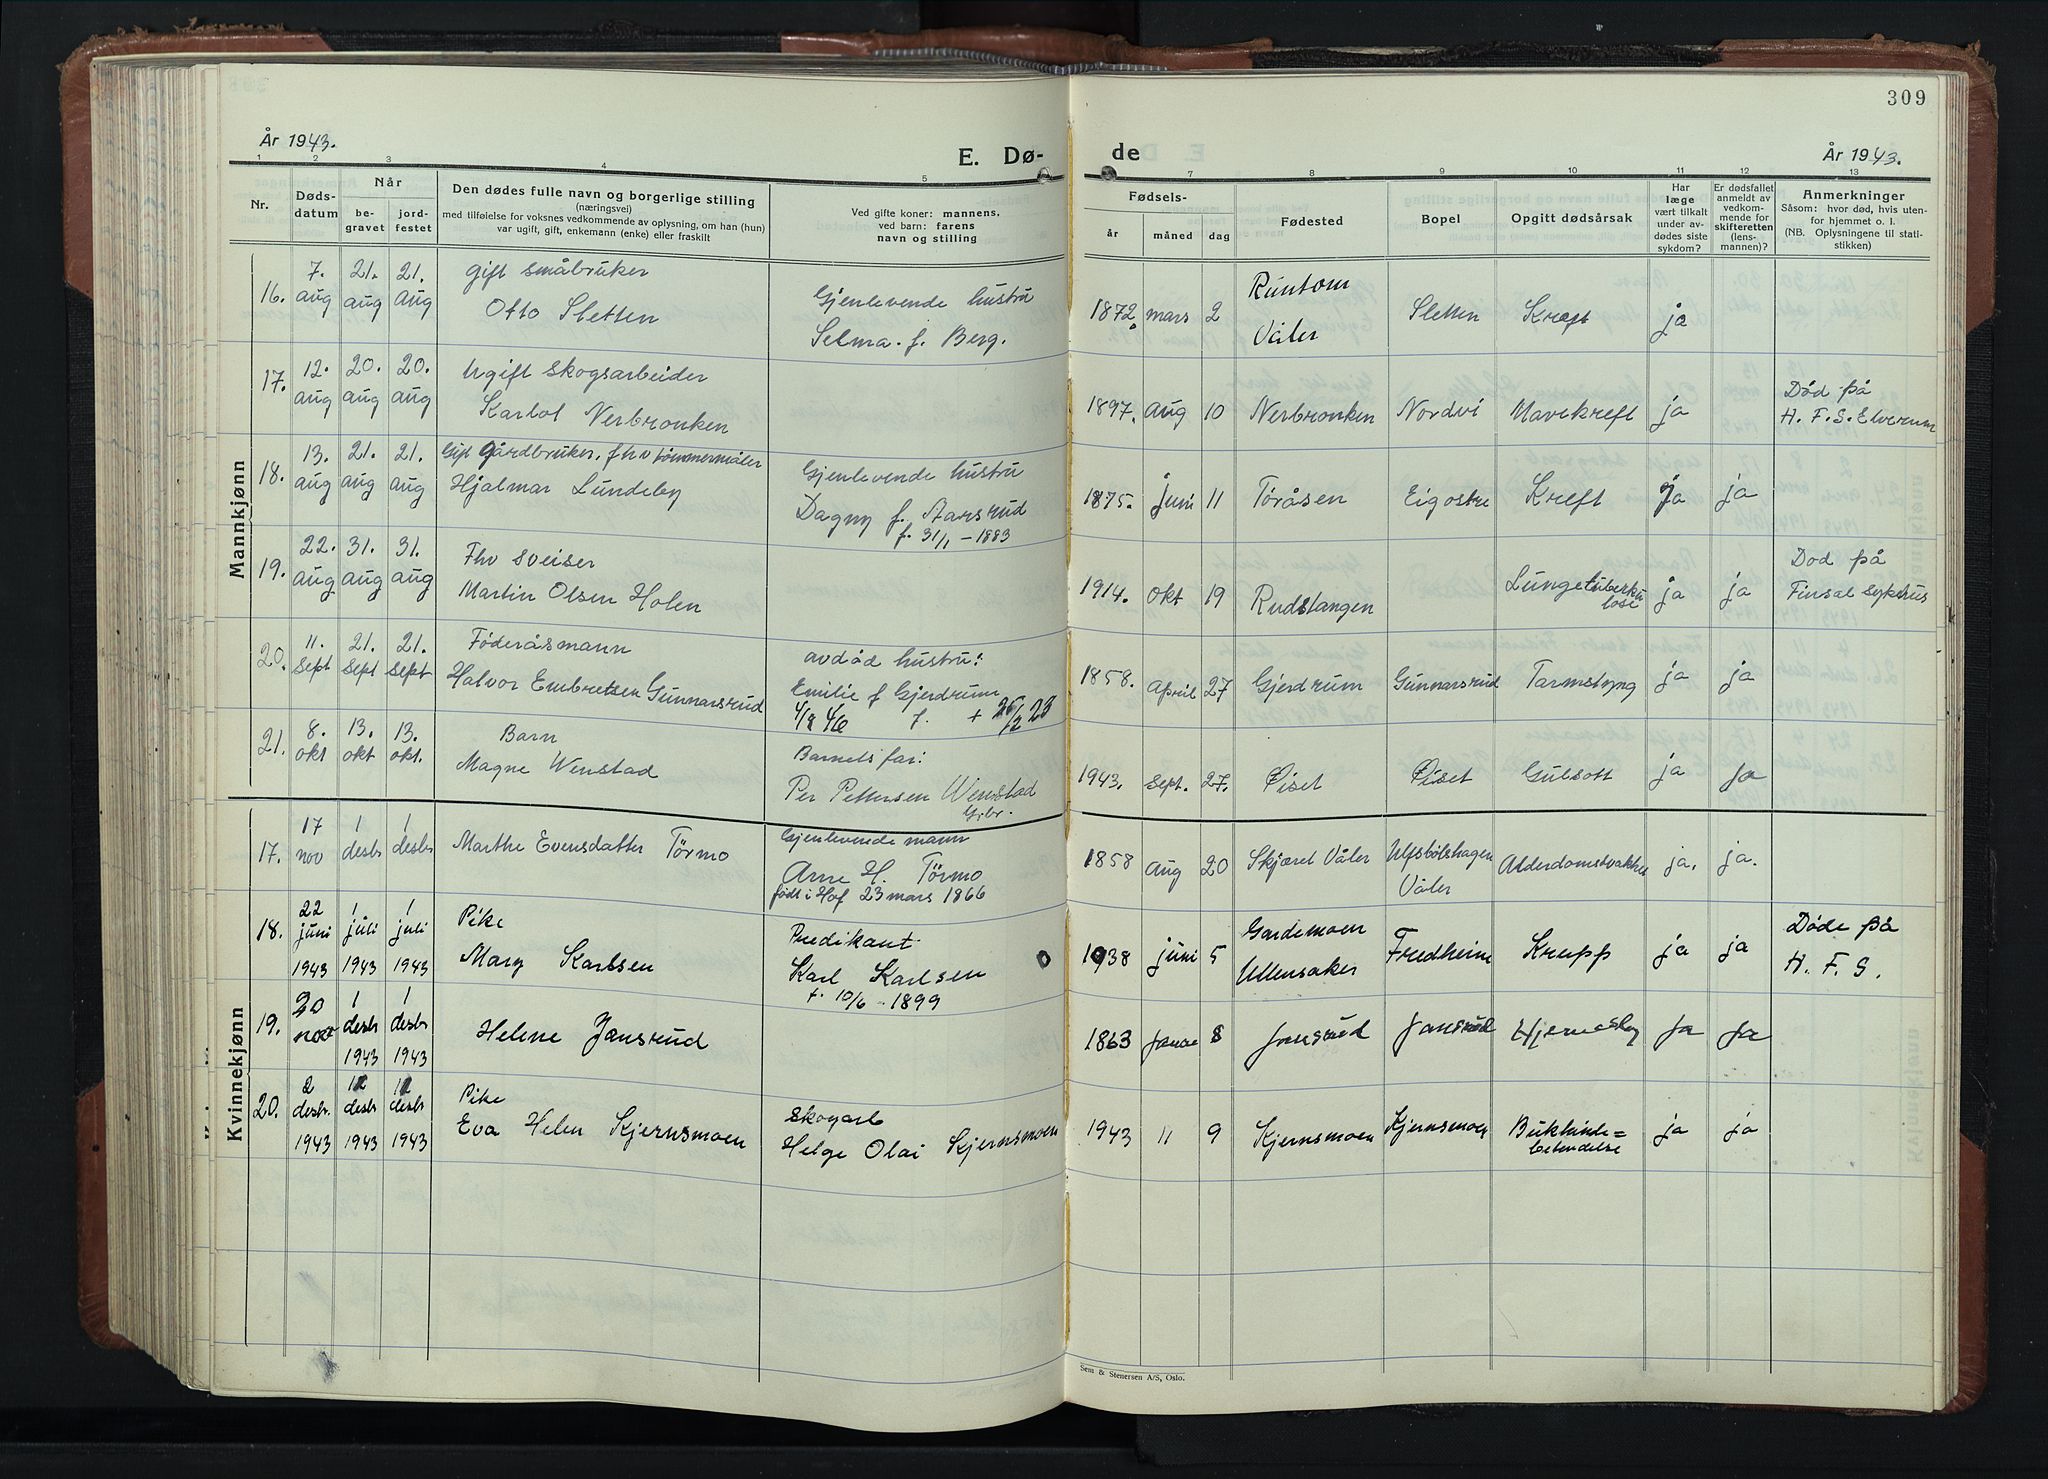 309
År 1943.
E. Dø-
de
År 1943.
1 2 3 4 5 7 8 9 10 11 12 13
Nr.
Døds-
datum
Når
be-
gravet
jord-
festet
Den dødes fulle navn og borgerlige stilling
(næringsvei)
med tilføielse for voksnes vedkommende av oplysning, om han (hun)
var ugift, gift, enkemann (enke) eller fraskilt
Ved gifte koner: mannens,
ved barn: farens
navn og stilling
Fødsels-
år måned dag
Fødested
Bopel
Opgitt dødsårsak
Har
læge
vært tilkalt
under av-
dødes siste
sykdom?
Er dødsfallet
anmeldt av
vedkom-
mende for
skifteretten
(lens-
mannen)?
Anmerkninger
Såsom: hvor død, hvis uten-
for hjemmet o. l.
(NB. Oplysningene til stati-
stikken)
Mannkjønn
16. 7. aug 21. aug 21. aug
gift småbruker
Otto Sletten
Gjenlevende hustru
Selma. f. Berg.
1872. mars 2 Runtom
Våler
Sletten Kreft ja
17. 12. aug 20. aug 20. aug
Ugift skogsarbeider
Karlot Nerbronken
1897. Aug 10 Nerbronken Nordvi Mavekreft ja
Død på
H. F. S. Elverum
18. 13. aug 21. aug 21. aug
Gift Gårdbruker, fhv tømmermåler
Hjalmar Lundeby
Gjenlevende hustru
Dagny f. Aarsrud
f. 31/1 - 1883
1875. juni 11 Toråsen Eigostre Kreft ja ja
19. 22. aug 31. aug 31. aug
Fhv sveiser
Martin Olsen Holen
1914. okt 19 Rudstangen Lungetuberku
lose ja ja
Død på
Finsal sykehus
20. 11. Sept 21. Sept 21. sept
Føderåsmann
Halvor Embretsen Gunnarsrud
avdød hustru:
Emilie f Gjerdrum
f. +
1858. April 27 Gjerdrum Gunnarsrud Tarmslyng ja ja
21. 8. okt 13. okt 13. okt.
Barn
Magne Wenstad
Barnets far:
Per Pettersen Wenstad
Grbr.
1943. Sept. 27. Øiset Øiset Gulsott ja ja
Kvinnekjønn
17. 17 nov 1 desbr 1 desbr
Marthe Evensdatter Tørmo
Gjenlevende mann
Arne H. Tørmo
født i Hof 23 mars 1866
1858 Aug 20 Skjæret Våler Ulfsbølshagen
Våler
Alderdomsvakhet ja, ja.
18. 22 juni 1943 1 juli 1943 1 juli 1943
Pike
Mary Karlsen
Predikant
Karl Karlsen
f. 10/6 - 1899
1938 juni 5 Gardemoen
Ullensaker
Fredheim Krupp ja ja
Døde på
H. F. S.
19. 20 nov 1 desbr 1943 1 desbr 1943
Helene Jansrud
1863 Januar 8 Jansrud Jansrud Hjerneslag ja ja
20. 2 desbr. 1943 12 desbr 1943 12 desbr 1943
Pike
Eva Helen Kjernsmoen
Skogarb
Helge Olai Kjernsmoen
1943 11 9 Kjernsmoen Kjernsmoen Bukhinde=
betendelse ja ja
Sem & Stenersen A/S, Oslo.